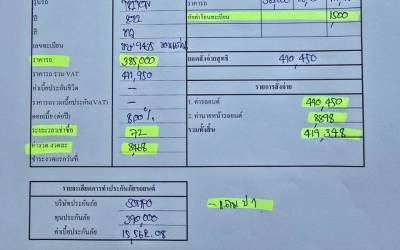 รุ่นรถ
ปี
ขาว
สี
เลขทะเบียน
ราคารถ 385,000
ราคารถ รวม VAT 411,950
ค่าเบี้ยประกันชีวิต —
ราคารถรวมเบี้ยประกัน(VAT) —
ดอกเบี้ย (ต่อปี) 8.00%
ระยะเวลาเช่าซื้อ 72
ค่างวด งวดละ
ชำระงวดแรกวันที่
ราคารถ
หักค่าโอนทะเบียน 1500
ยอดสั่งจ่ายสุทธิ 410,450
รายการสั่งจ่าย
1. ค่ารถยนต์ 410,450
2. ค่านายหน้ารถยนต์ 8,898
รวมทั้งสิ้น 419,348
รายละเอียดการทำประกันภัยรถยนต์
บริษัทประกันภัย
ทุนประกันภัย 390,000
ค่าเบี้ยประกันภัย 15,562.08